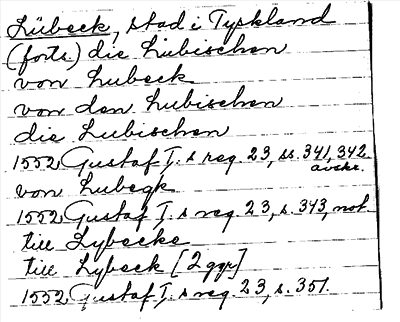 Lübeck, stad i Tyskland
(forts) die Lübischen
von Lubeck
van den Lubischen
die Lubischen
1552, Gustaf I:s reg. 23, ss. 341, 342.
avskr.
von Lubegk
1552, Gustaf I:s reg. 23, s. 343, not.
till Lybecke
till Lybeck [2 ggr]
1552, Gustaf I:s reg. 23, s. 351.